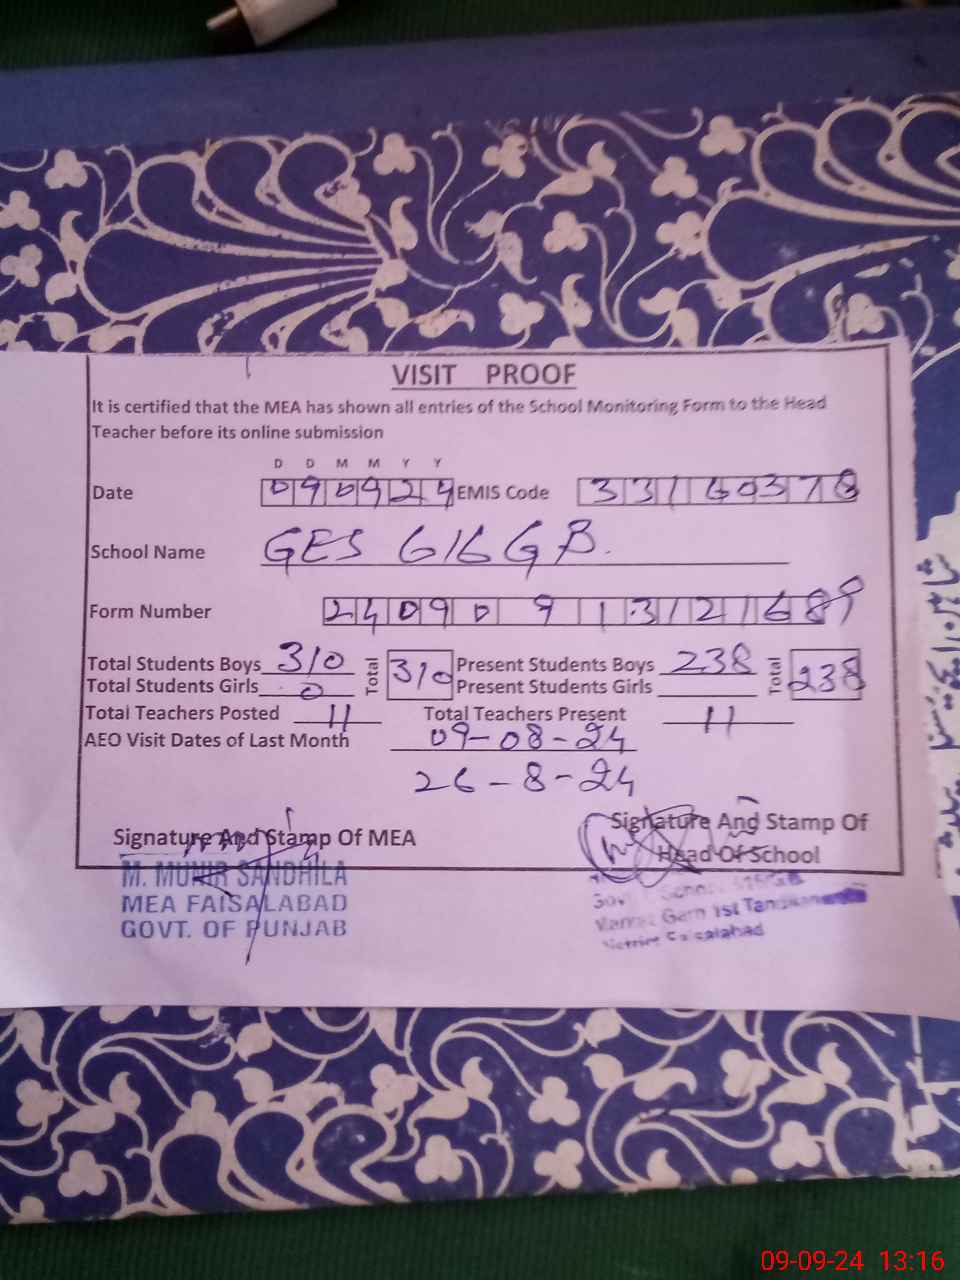 VISIT PROOF
It is certified that the MEA has shown all entries of the School Monitoring Form to the Head
Teacher before its online submission
D D M M Y Y
Date 090924 EMIS Code 33160378
School Name GES 616 GB.
Form Number 24090913121689
Total Students Boys 310 Total 310 Present Students Boys 238 Total 238
Total Students Girls 0 Present Students Girls
Total Teachers Posted 11 Total Teachers Present 11
AEO Visit Dates of Last Month 09-08-24
26-8-24
Signature And Stamp Of MEA Signature And Stamp Of
Head Of School
M. MUNIR SANDHILA
MEA FAISALABAD
GOVT. OF PUNJAB
09-09-24 13:16